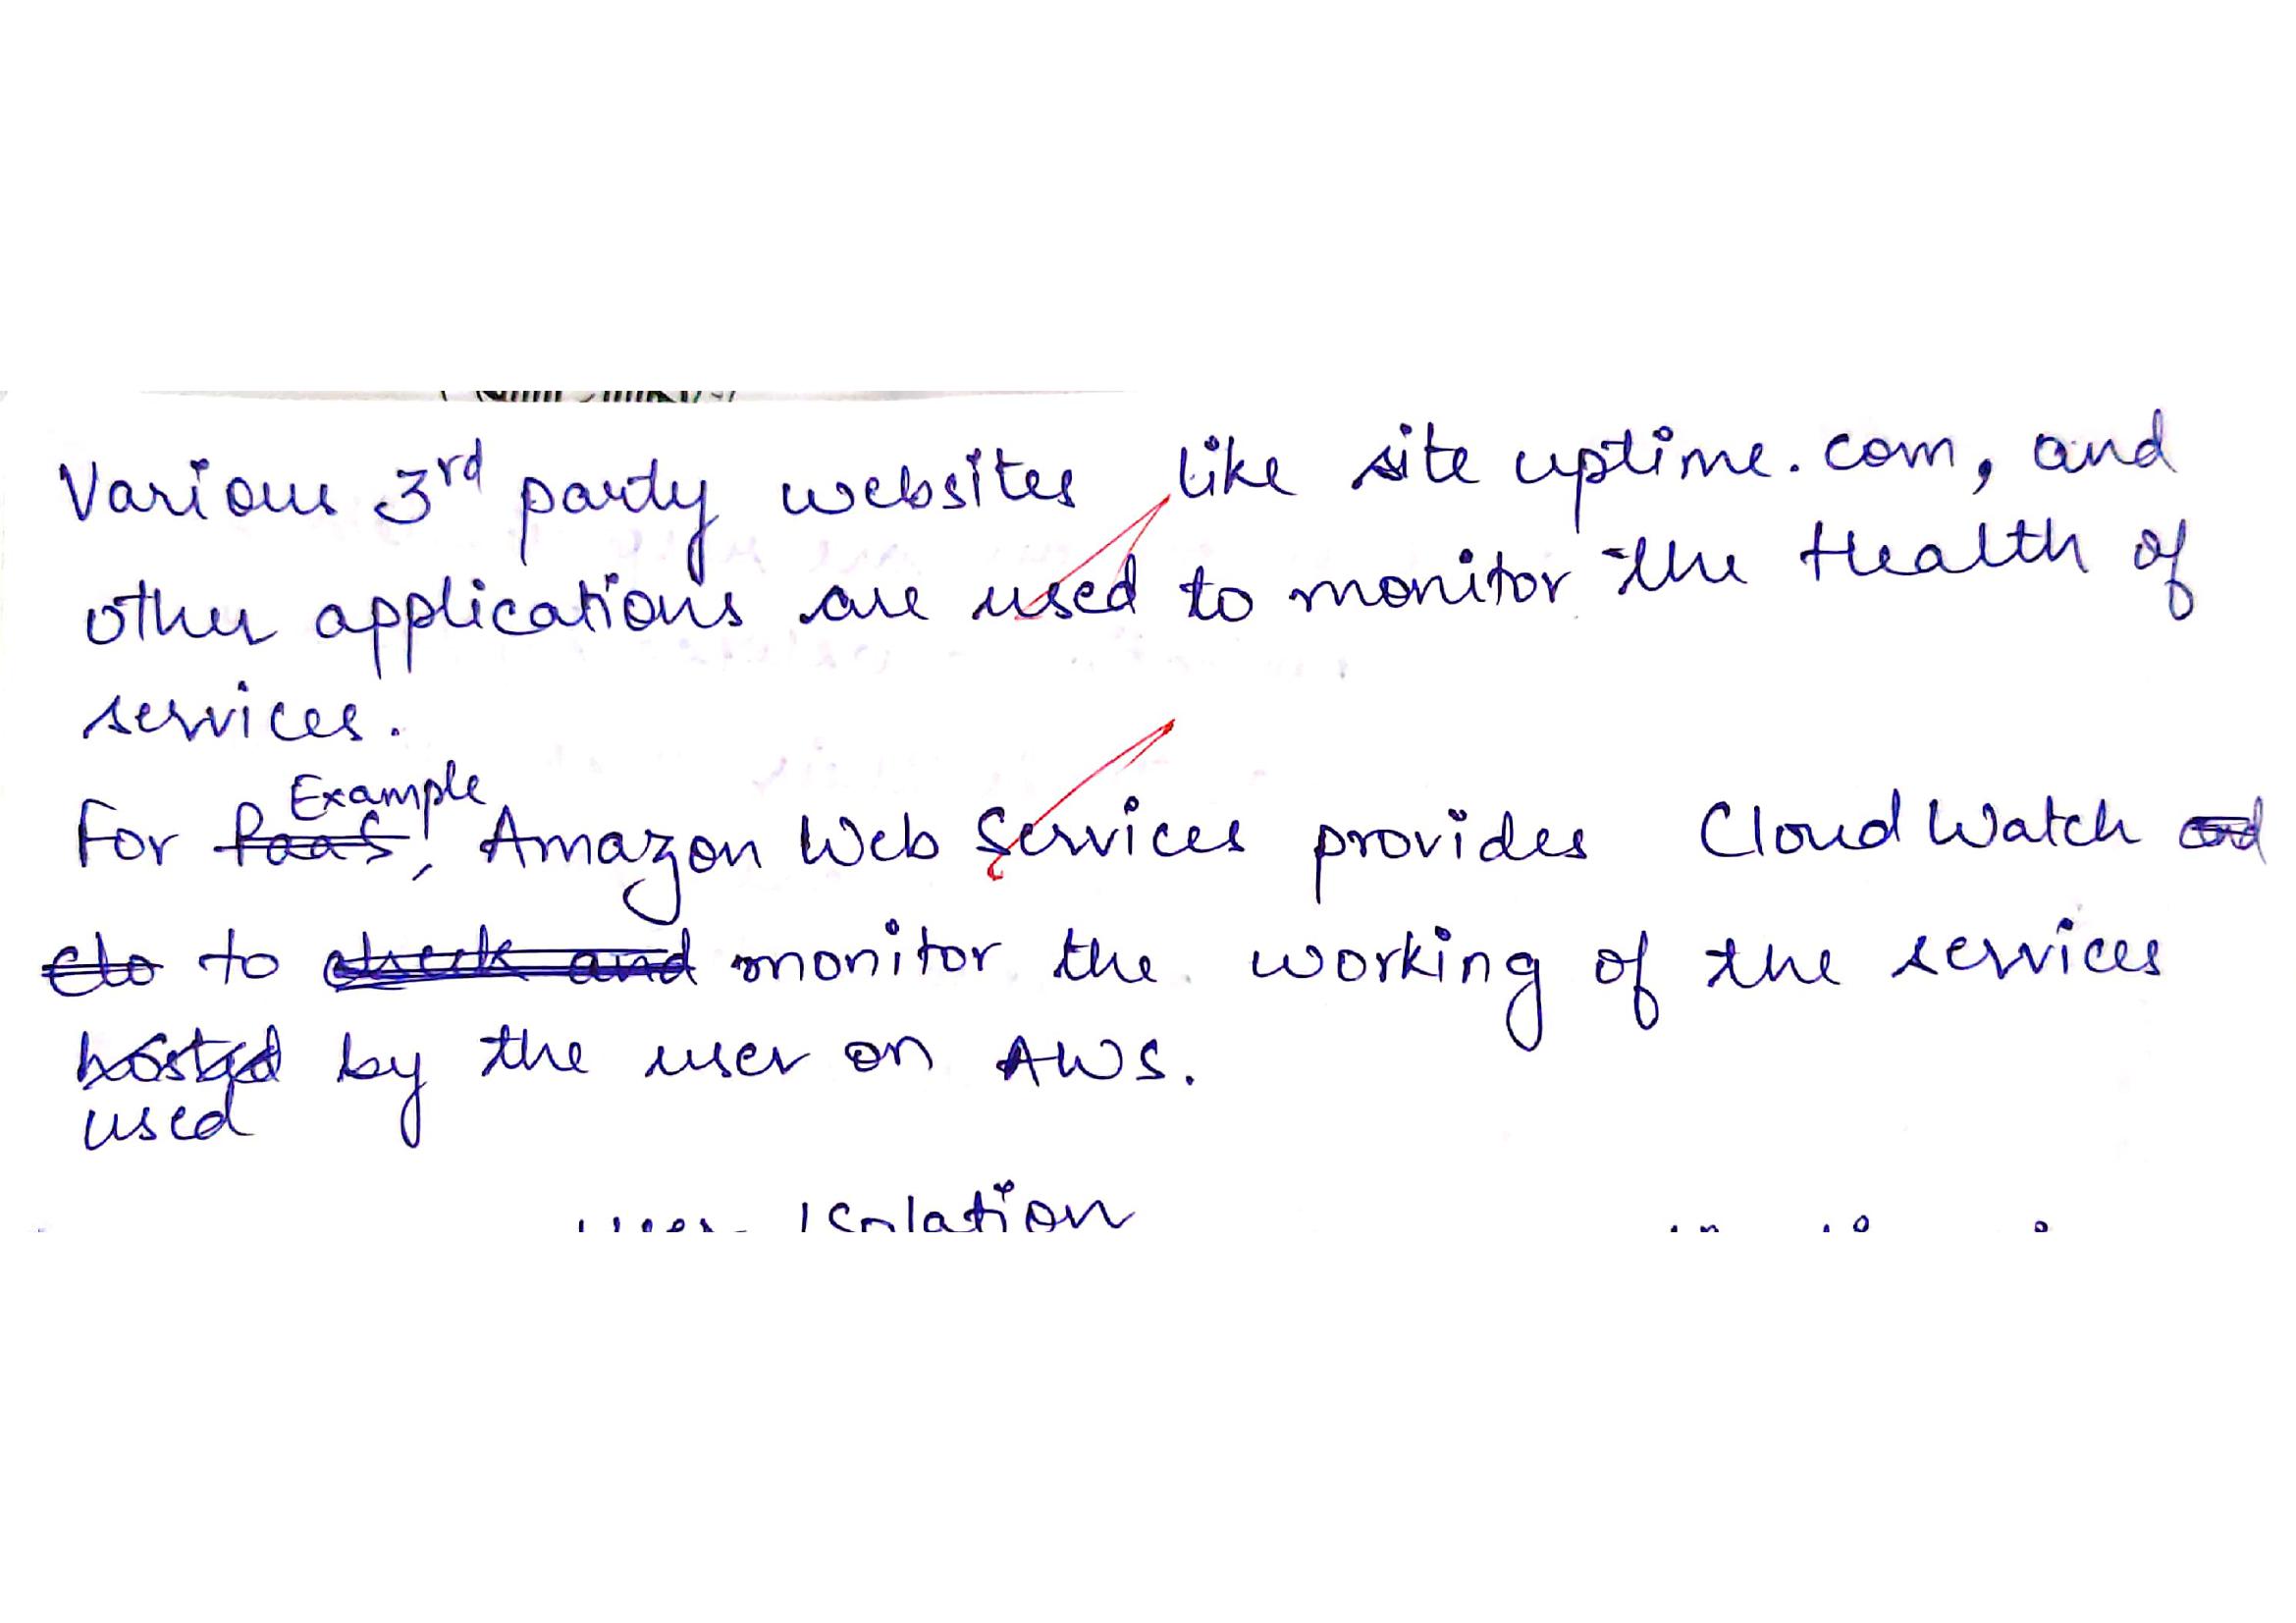 Various 3rd party websites like site uptime.com, and
other applications are used to monitor the Health of
services.
For Example, Amazon Web Services provides Cloud Watch
to monitor the working of the services
used by the user on AWS.